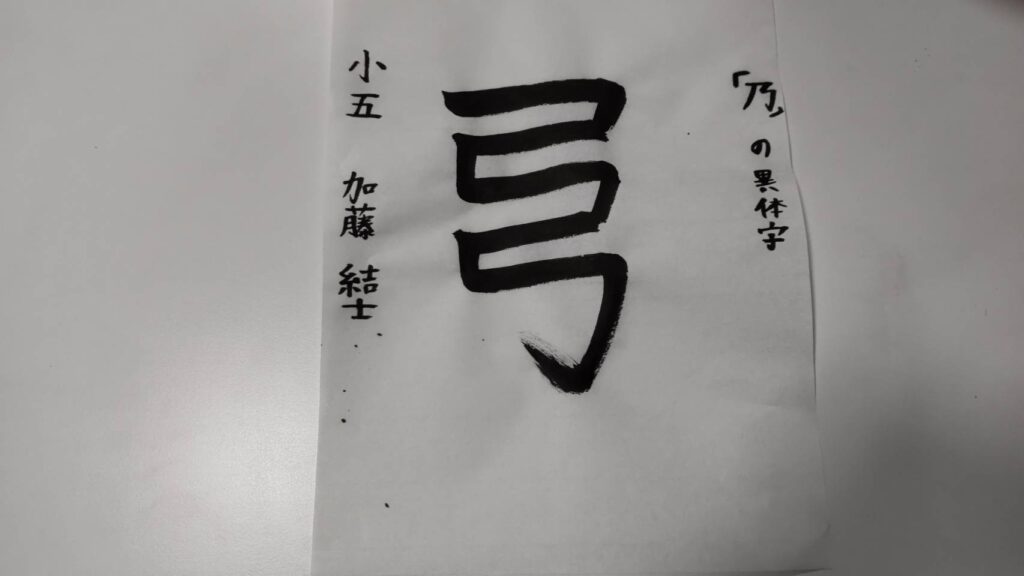 「乃」の異体字
小五 加藤 結士